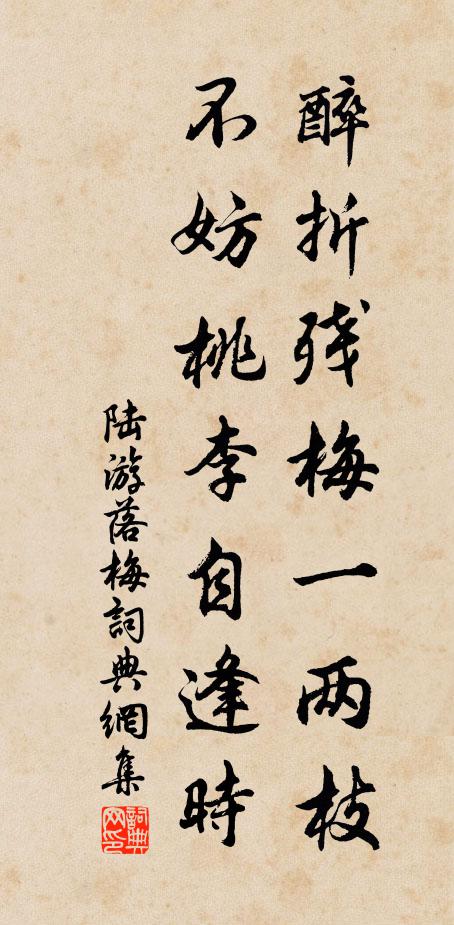 醉折残梅一两枝
不妨桃李自逢時
陸游落梅詞典網集
詞典網印